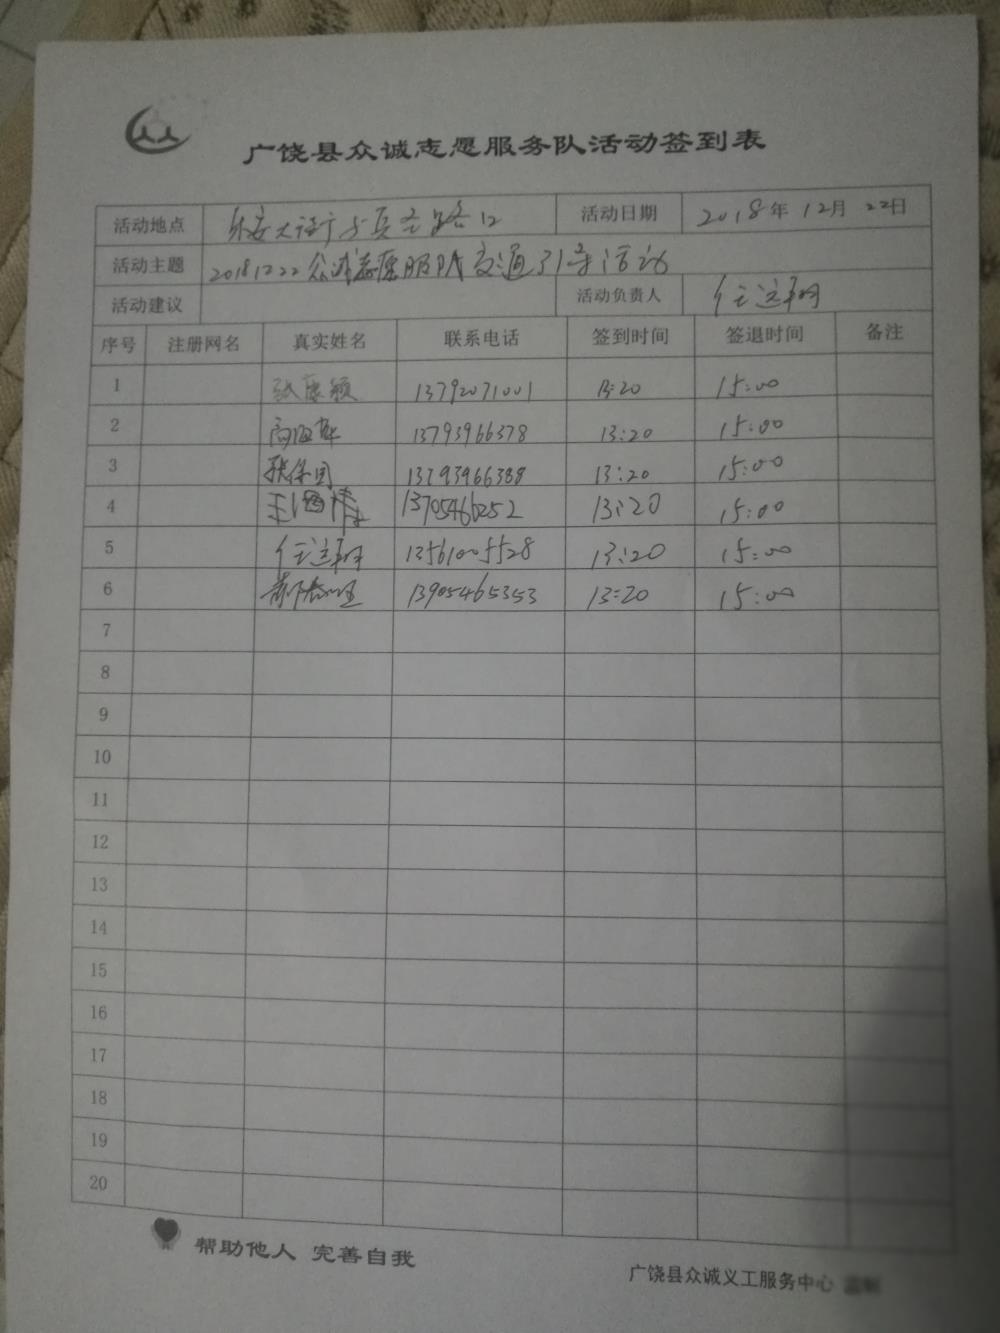 广饶县众诚志愿服务队活动签到表
活动地点 乐安大街与兵圣路口 活动日期 2018年12月22日
活动主题 20181222众诚志愿服队交通引导活动
活动建议 活动负责人
序号 注册网名 真实姓名 联系电话 签到时间 签退时间 备注
1 13792071001 13:20 15:00
2 13793966378 13:20 15:00
3 张保国 13793966388 13:20 15:00
4 13705466252 13:20 15:00
5 13561005528 13:20 15:00
6 13905465353 13:20 15:00
7
8
9
10
11
12
13
14
15
16
17
18
19
20
帮助他人 完善自我
广饶县众诚义工服务中心